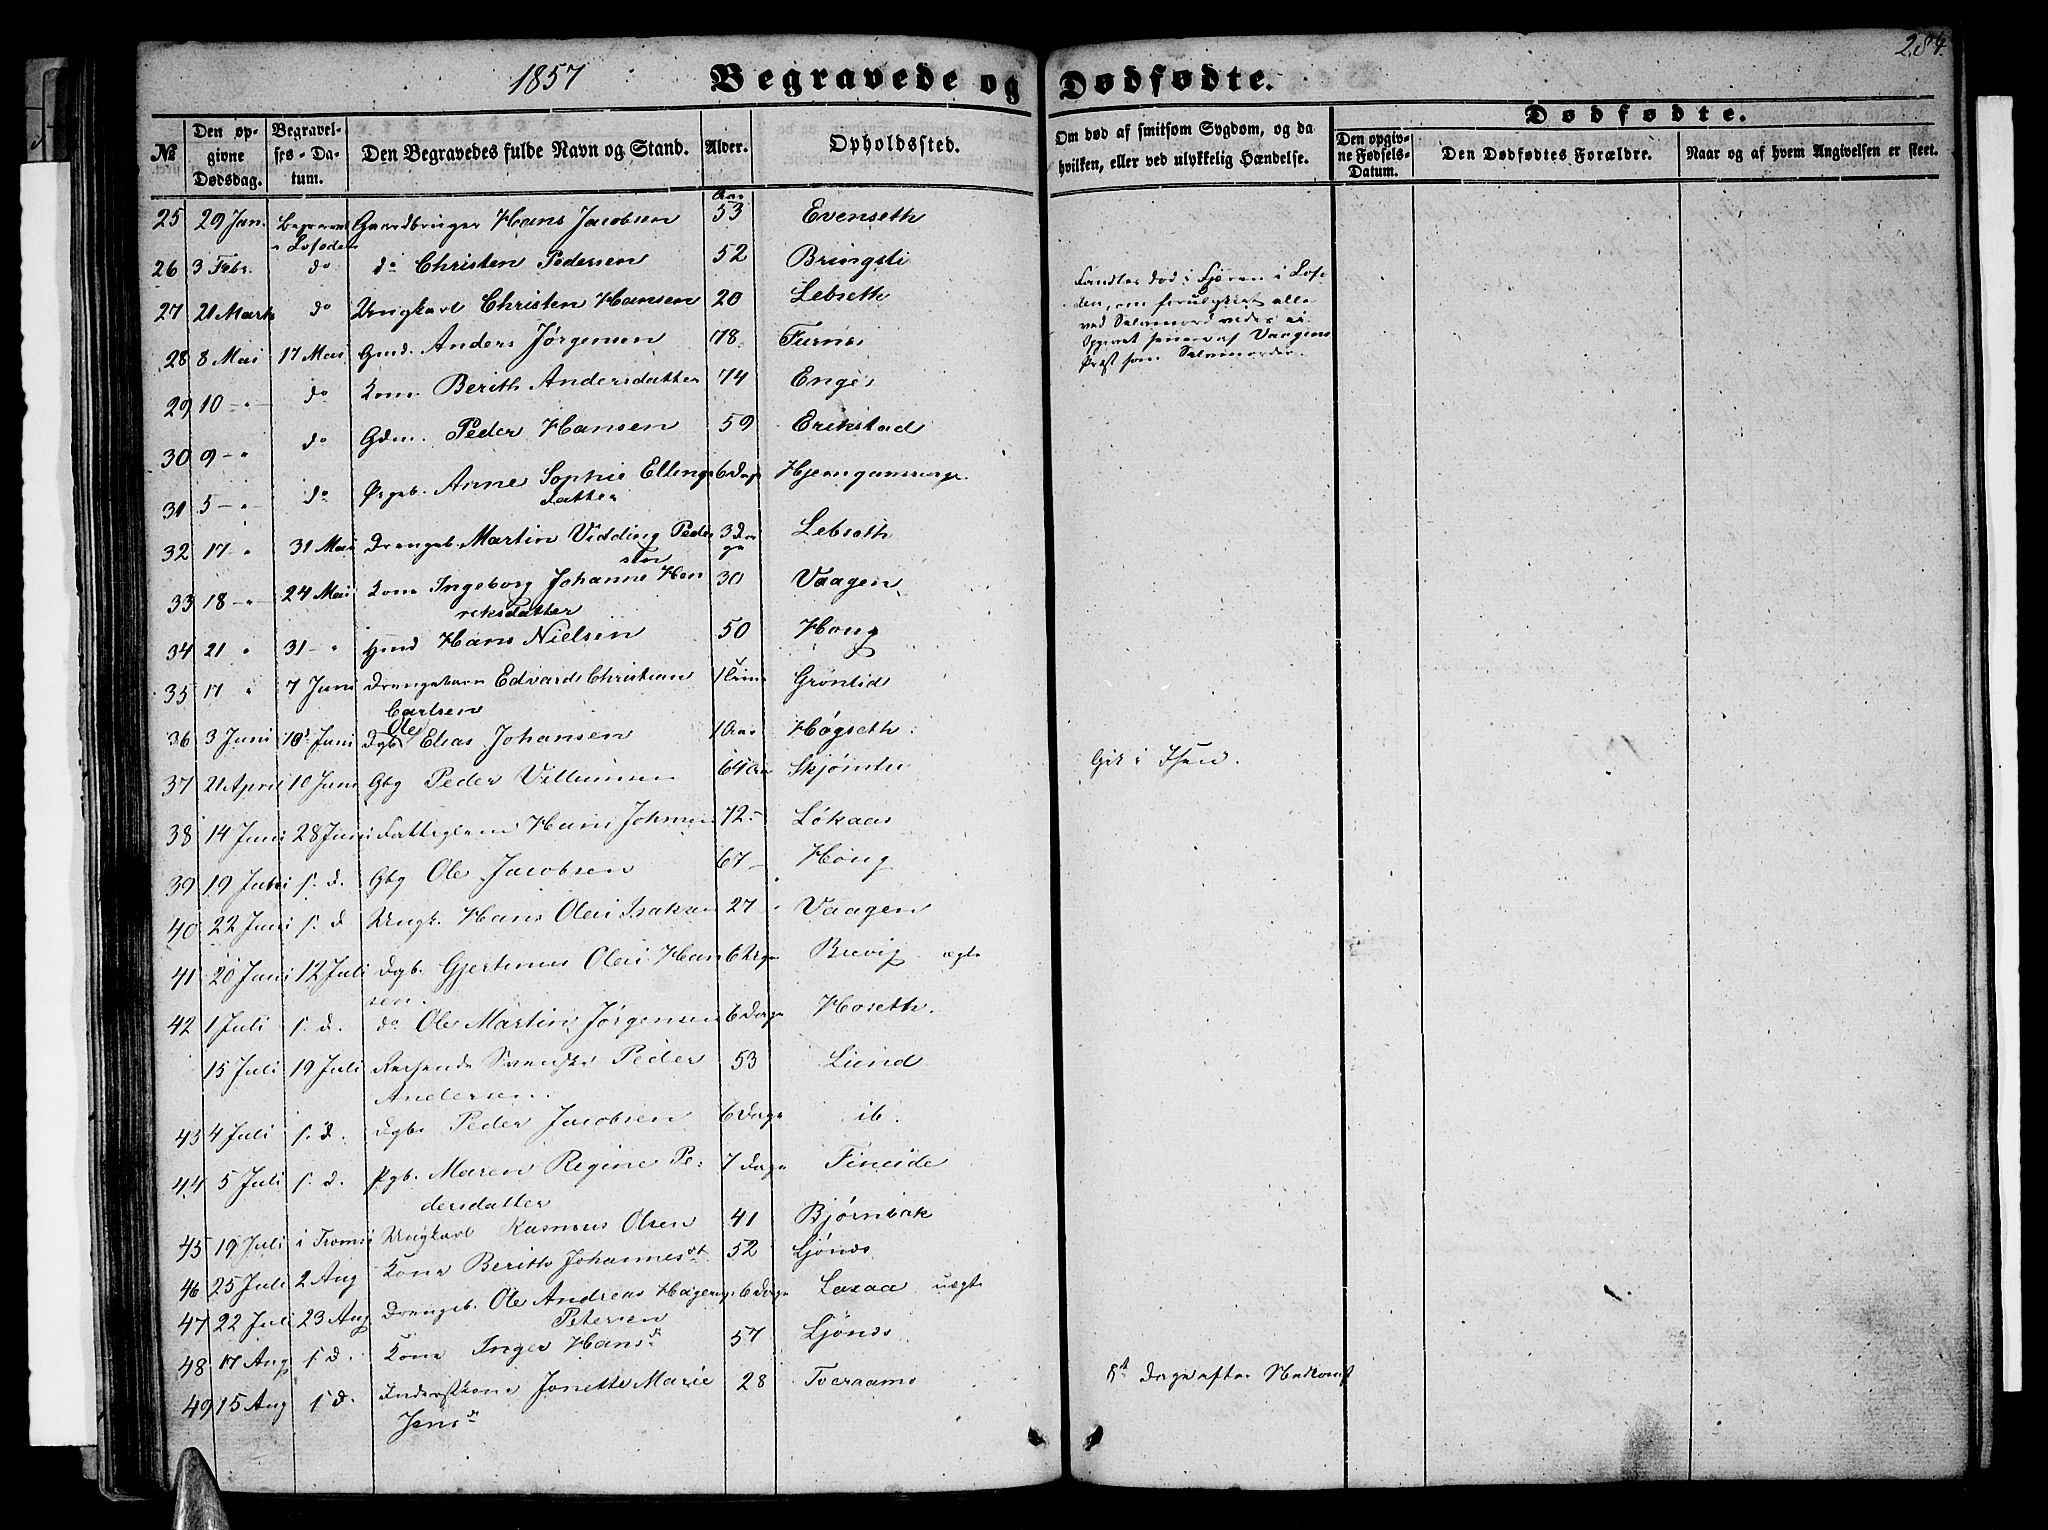 284.
1857 Begravede og Dødfødte.
№ Den opgivne Dødsdag. Begravelses-Datum. Den Begravedes fulde Navn og Stand. Alder. Opholdssted. Om død af smitsom Sygdom, og da hvilken, eller ved ulykkelig Hændelse. Den opgivne Fødsels-Datum. Den Dødfødtes Forældre. Naar og af hvem Angivelsen er skeet.
Dødfødte.
25 29 Jan. i Lofoden Gaardbruger Hans Jacobsen Aar 53 Evenseth
26 3 Febr. do do Christen Pedersen 52 Bringsli
27 21 Marts do Ungkarl Christen Hansen 20 Lebseth Fandtes død i Fjæren i Lofoden, om forulykket eller ved Selvmord vides ei
28 8 Mai 17 Mai Gmd. Anders Jørgensen 78. Furnes
29 10 - " - do Kone Berith Andersdatter 74 Enge
30 9 - " do Gdm. Peder Hansen 59 Erikstad
31 5 - " do Pigeb. Anne Sophie Ellingsdatter 6 Dage
32 17 - " 31 Mai Drengeb. Martin Vidding Pedersen 3 Dage Lebseth
33 18 - " - 24 Mai Kone Ingeborg Johanne Henreksdatter 30 Vaagen
34 21 " 31 - " Hmd Hans Nielsen 50 Hong
35 17 " 7 Juni Drengebarn Edvard Christian Carlsen Grøntid
36 3 Juni 10 Juni Dgb. Ole Elias Johansen 1 Aar Høgseth
37 21 April 10 Juni Gbg Peder Villumsen 64 Aar Gik i Isen.
38 14 Juni 28 Juni Hans Johnsen 72 - Løkaas
39 19 Juni s. d. Gbg Ole Jacobsen 67 - Hong
40 22 Juni s. d Ungk. Hans Olai Isaksen 27 - Vaagen
41 20 Juni 12 Juli Dgb. Gjertinus Olai Hansen. Brevig ægte
42 1 Juli s. d. do Ole Martin Jørgensen 6 Dage Hoseth.
15 Juli 19 Juli Reisende Svenske Peder Andersen. 53 Lund
43 4 Juli s. d. Dgb. Peder Jacobsen 6 Dage ib.
44 5 Juli s. d. Pgb. Maren Regine Pedersdatter 7 Dage Fineide
45 19 Juli i Tromsø Ungkarl Rasmus Olsen 41 Bjørnbak
46 25 Juli 2 Aug Kone Berith Johannesdt 52 Ljønes
47 22 Juli 23 Aug Drengeb. Ole Andreas Petersen 6 Dage Laxaa uægte
48 17 Aug s. d. Kone Inger Hansd. 57 Ljønes
49 15 Aug s d. Inderstkone Jonette Marie Jensd. 28 Tveraamo 8t Dage efter Nedkomst